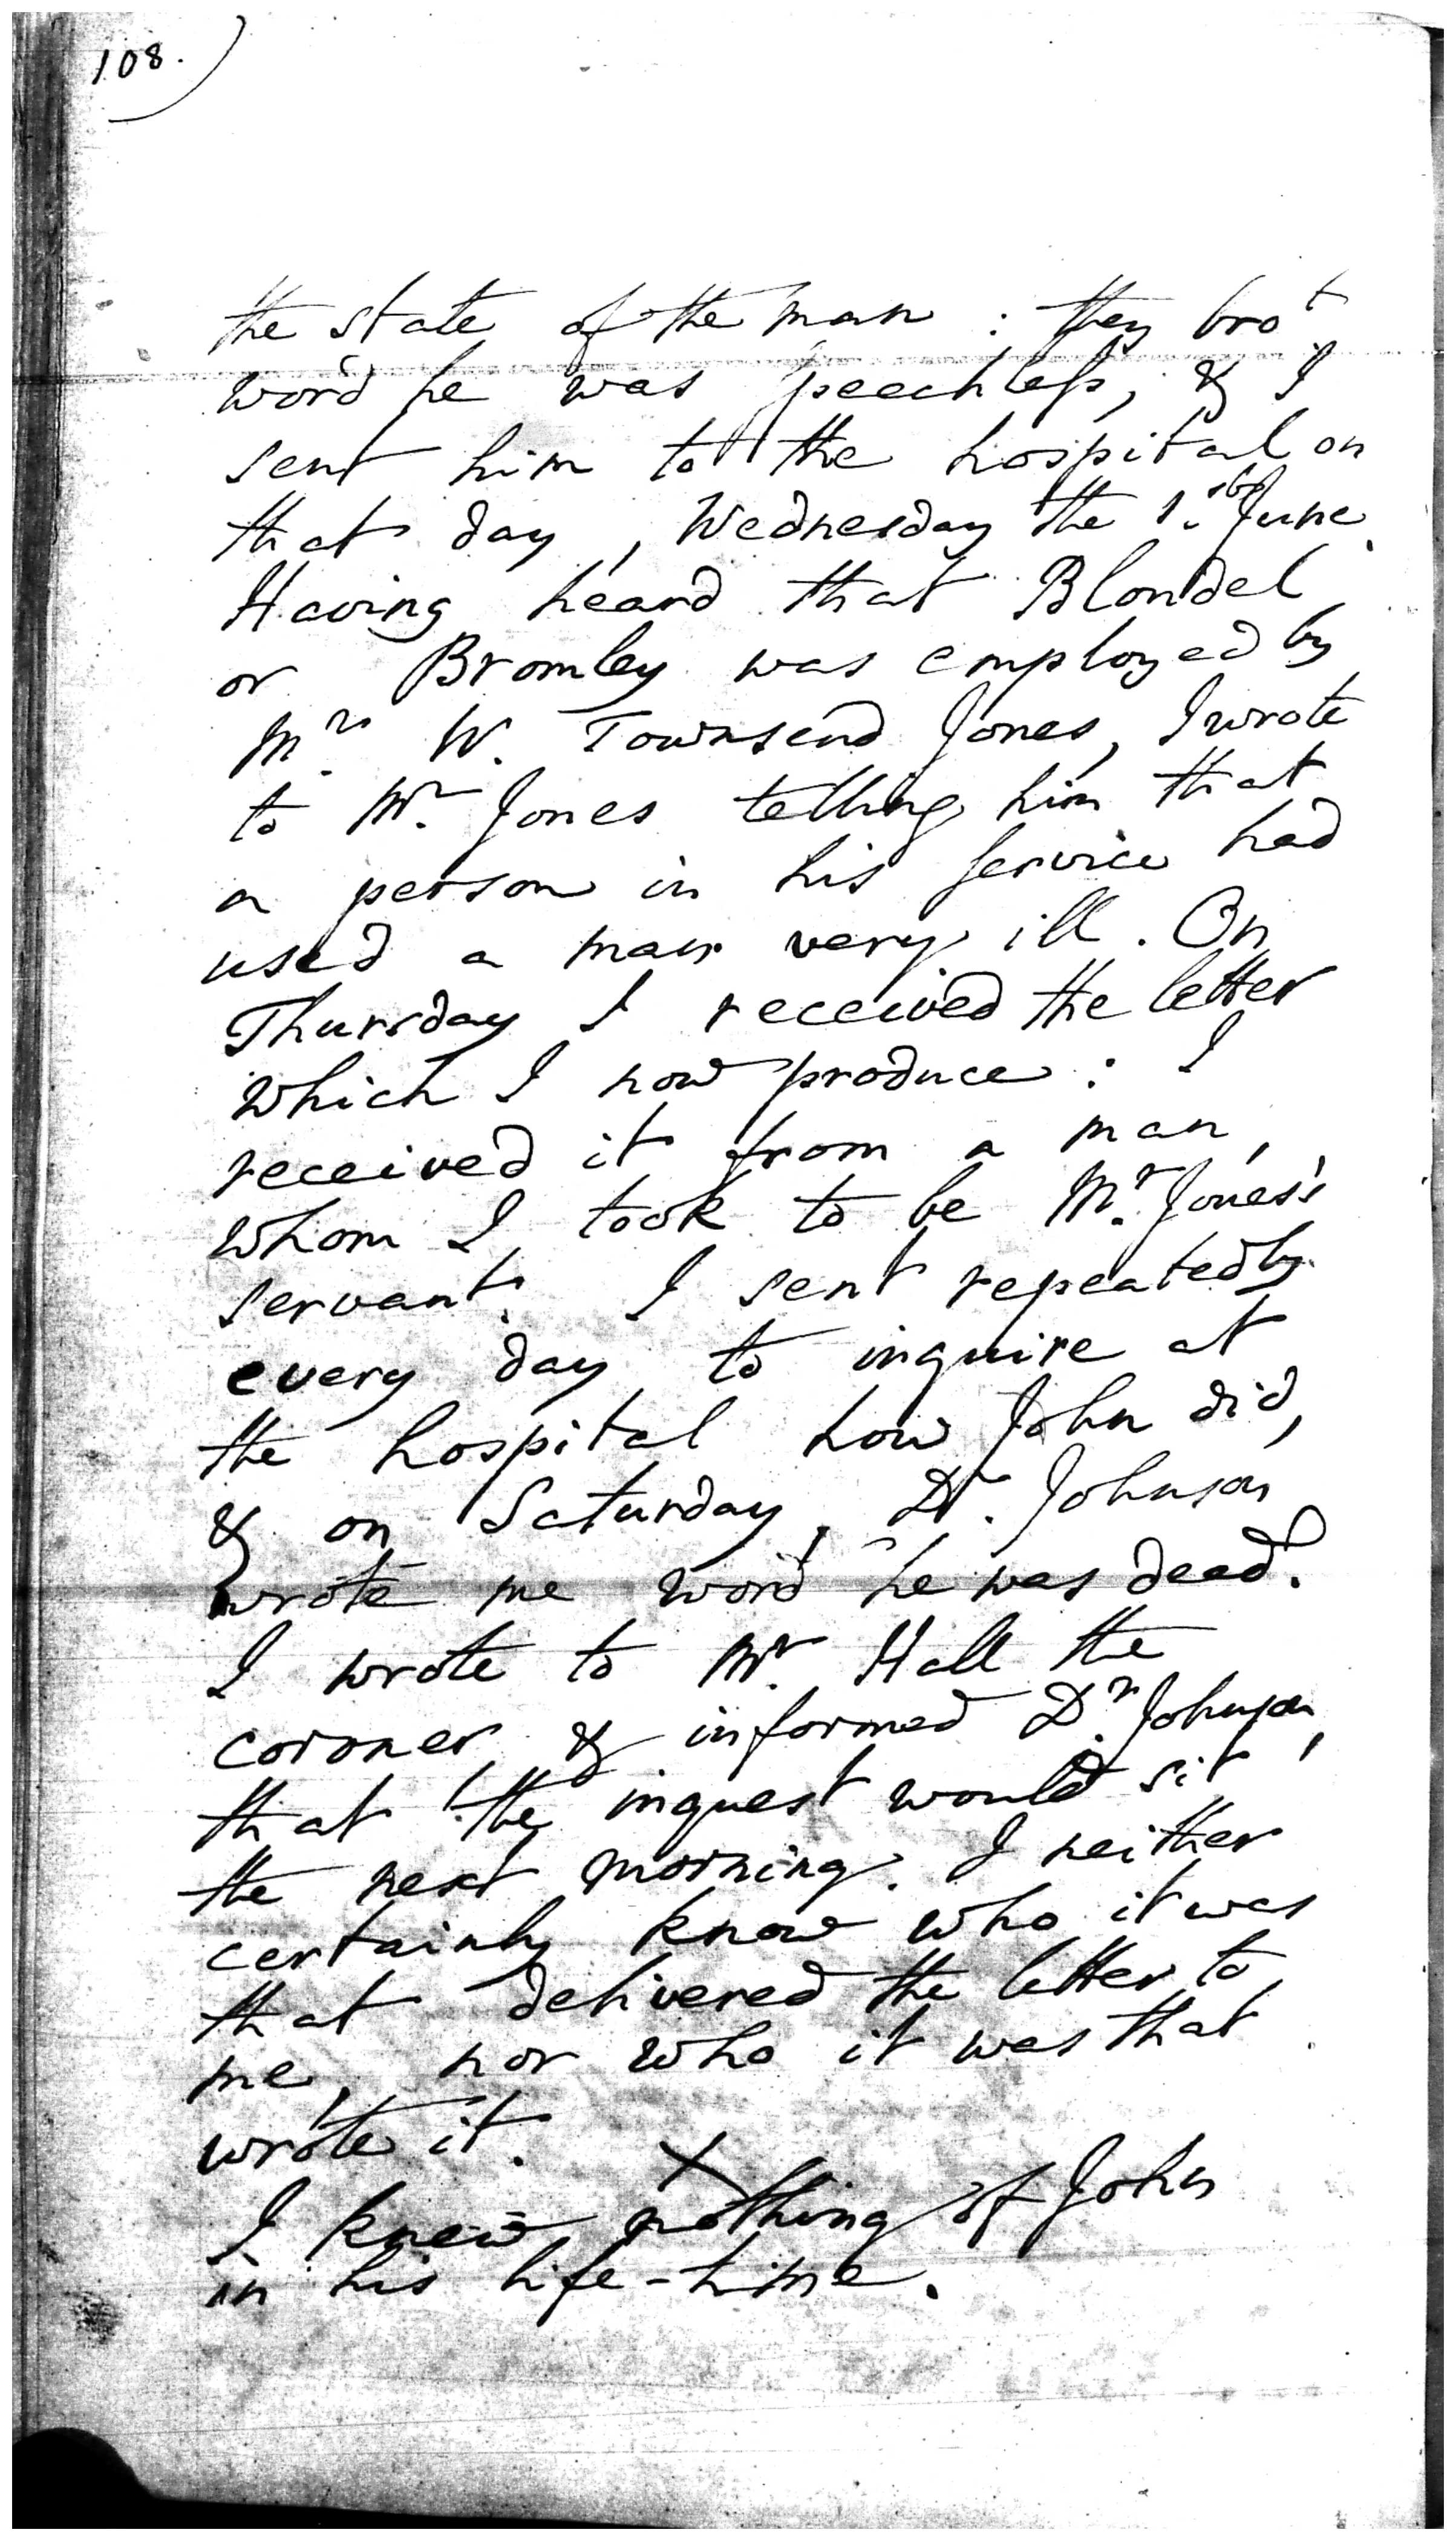 108.
the state of the man : they bro^t
word he was speechless, & I
sent him to the hospital on
that day, Wednesday the 1.st June.
Having heard that Blondel
or Bromley was employed by
Mr. W. Townsend Jones, I wrote
to Mr. Jones telling him that
a person in his service had
used a man very ill. On
Thursday I received the letter
which I now produce : I
received it from a man,
whom I took to be Mr. Jones's
servant. I sent repeatedly
every day to inquire at
the hospital how John did,
& on Saturday, Dr. Johnson
wrote me word he was dead.
I wrote to Mr. Hall the
coroner & informed Dr. Johnson,
that the inquest would sit
the next morning. I neither
certainly know who it was
that delivered the letter to
me, nor who it was that
wrote it. X
I knew nothing of John
in his life-time.